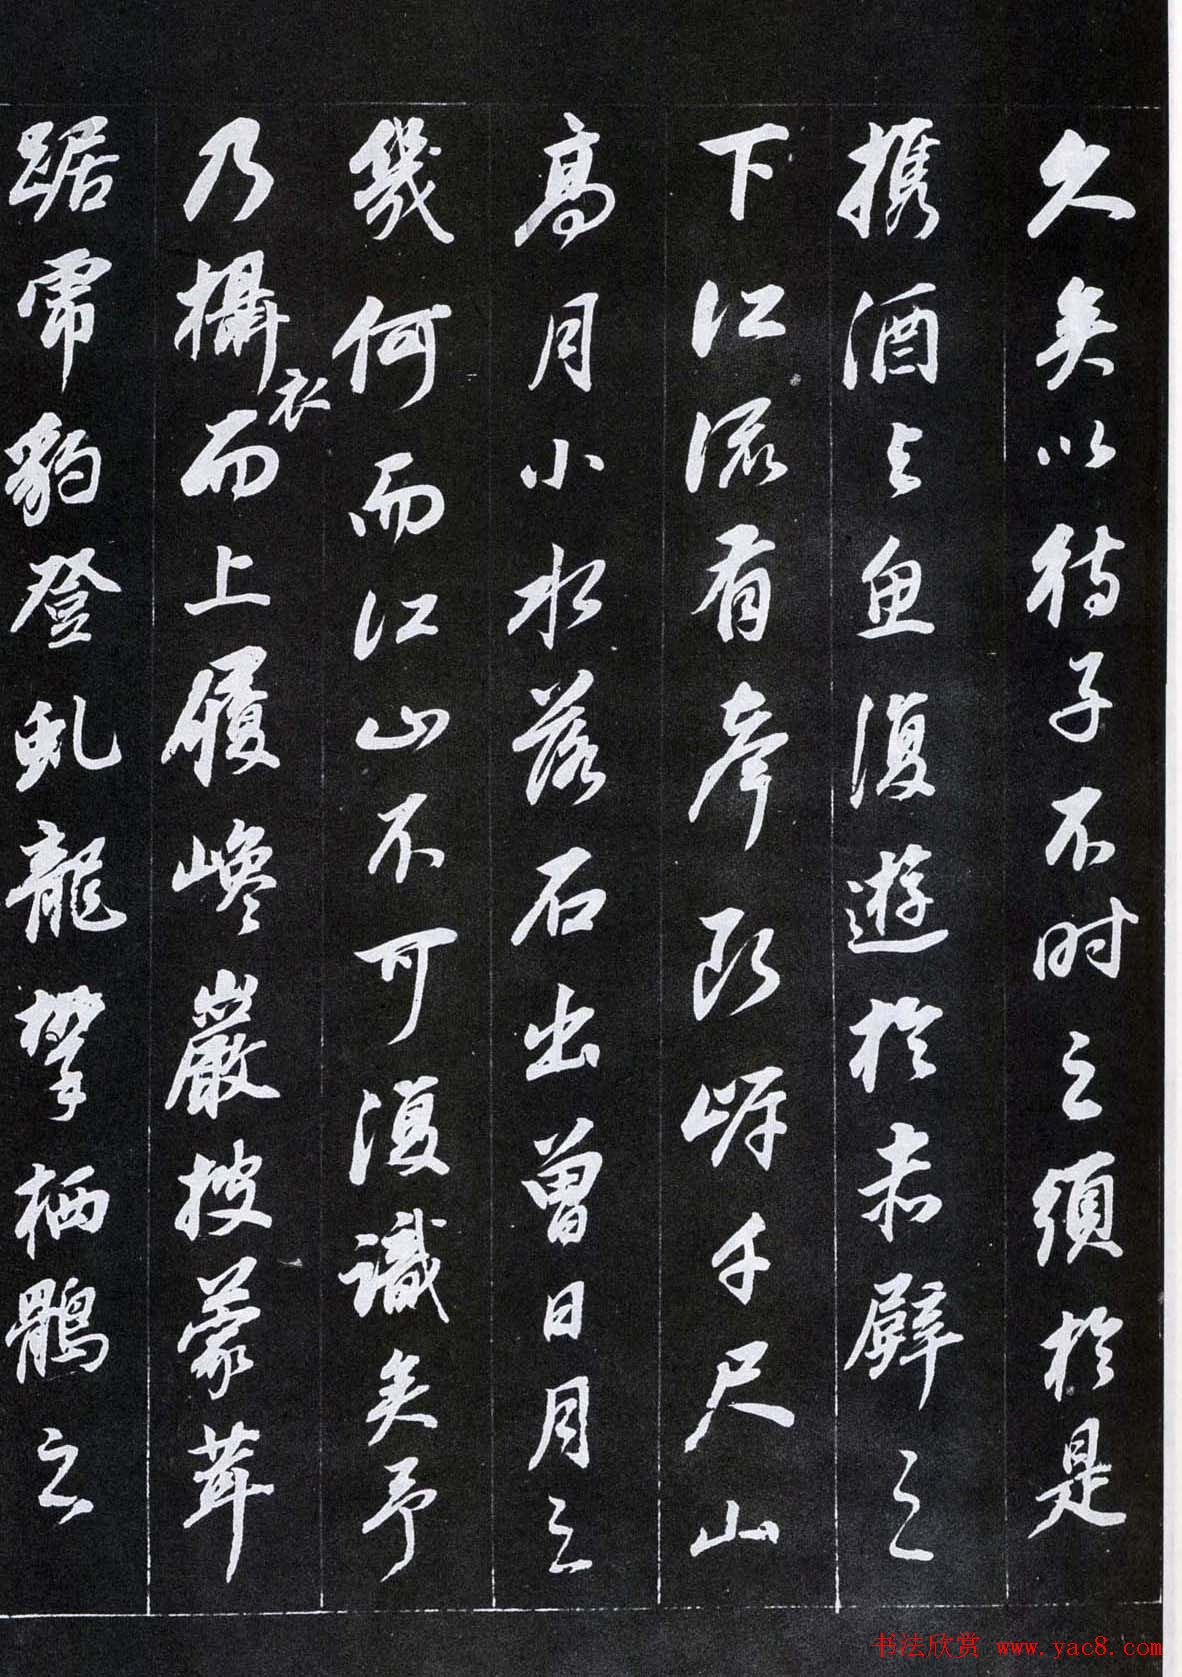 久矣以待子不時之須於是
携酒與魚復遊於赤壁之
下江流有聲斷岸千尺山
高月小水落石出曾日月之
幾何而江山不可復識矣予
乃攝衣而上履巉巖披蒙茸
踞虎豹登虬龍攀栖鶻之
书法欣赏 www.yac8.com